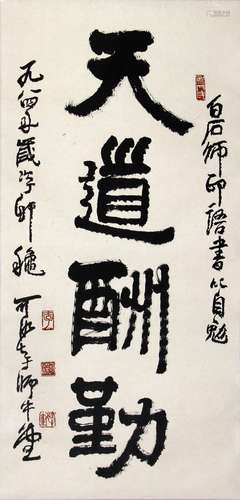 白石師印語書以自勉
天道酬勤
九八 年歲 龝 可染 師牛堂